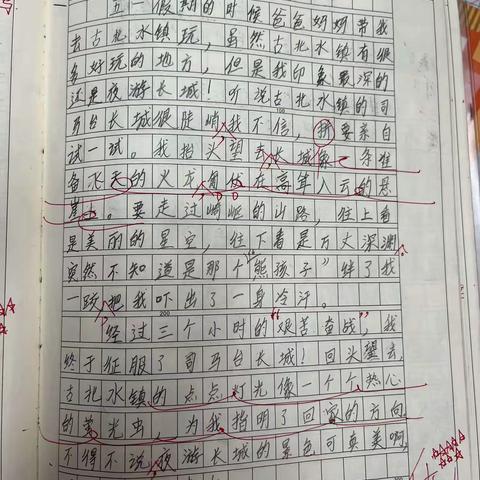 五一假期的时候爸爸妈妈带我
去古北水镇玩，虽然古北水镇有很
多好玩的地方，但是我印象最深的
还是夜游长城！听说古北水镇的司
马台长城很陡峭我不信，拼要亲自
试一试。我抬头望去长城像一条准
备飞天的火龙俯伏在高耸入云的悬
崖上。要走过崎岖的山路，往上看
是美丽的星空，往下看是万丈深渊
突然不知道是那个"熊孩子"绊了我
一跤把我吓出了一身冷汗。
经过三个小时的"艰苦奋战"，我
终于征服了司马台长城！回头望去，
古北水镇的点点灯光像一个个热心
的萤光虫，为我指明了回家的方向
不得不说夜游长城的景色可真美啊，
100
200
300